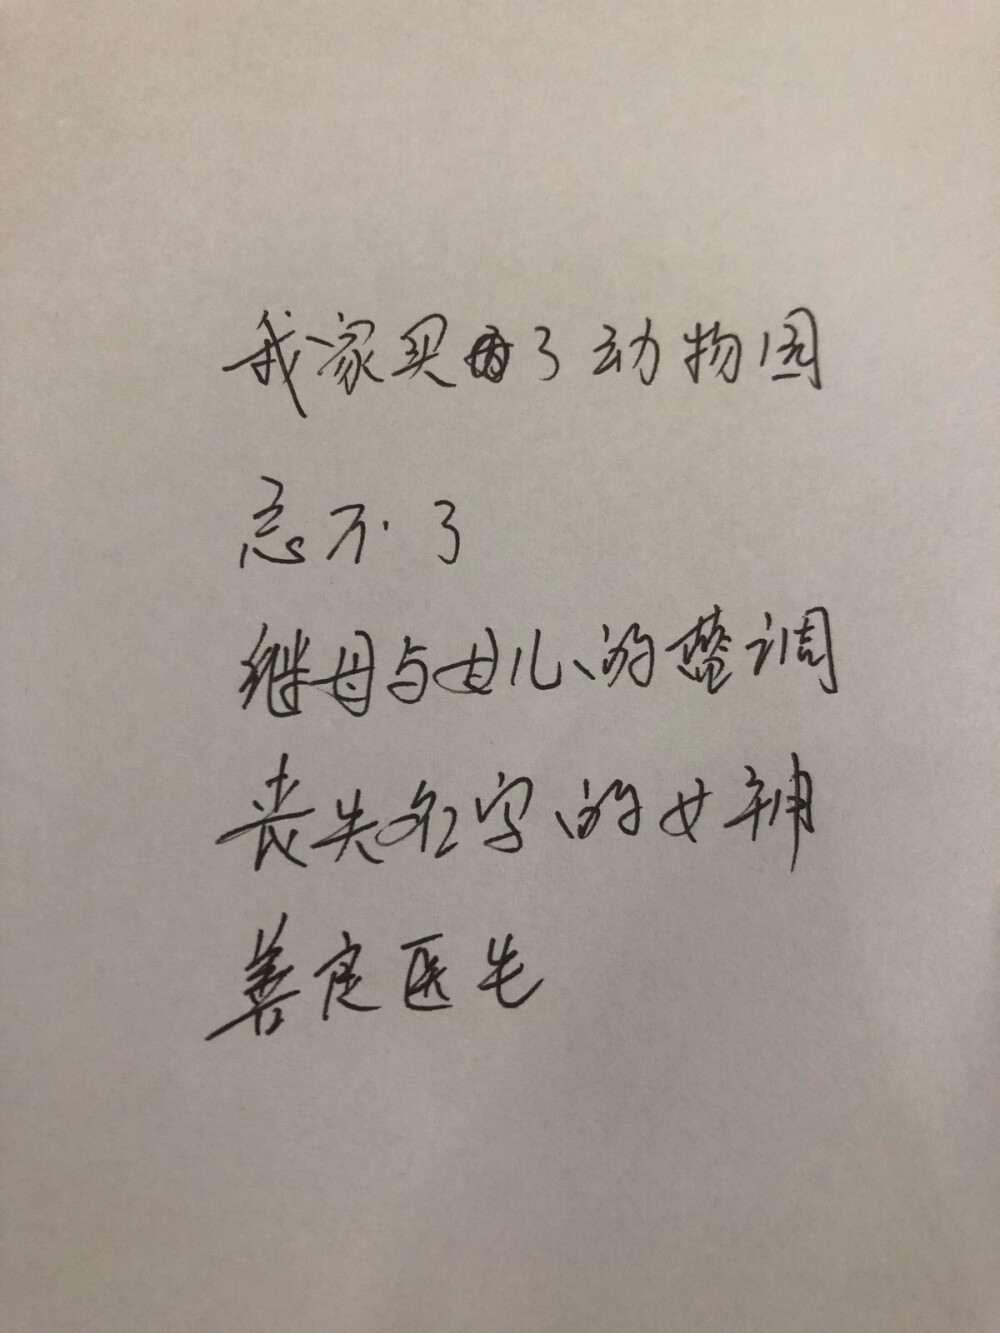 我家买了动物园
忘不了
继母与女儿的蓝调
丧失名字的女神
善良医生